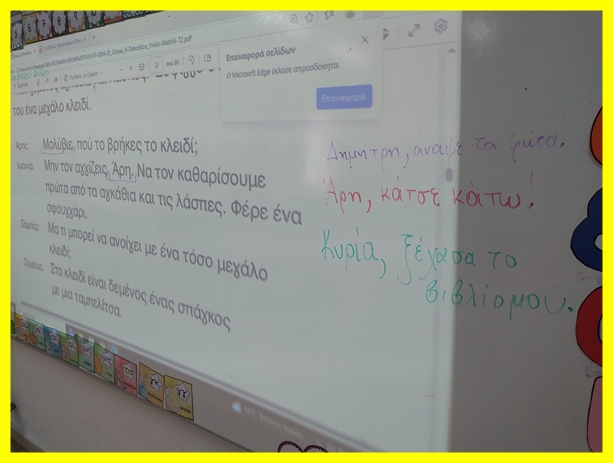 Επαναφορά σελίδων
Ο Microsoft Edge έκλεισε απροσδόκητα.
Επαναφορά
του ένα μεγάλο κλειδί.
Άρης: Μολύβιε, πού το βρήκες το κλειδί;
Ιωάννα: Μην τον αγχίζεις, Άρη. Να τον καθαρίσουμε
πρώτα από τα αγκάθια και τις λάσπες. Φέρε ένα
σφουγγάρι.
Σαμπέρ: Μα τι μπορεί να ανοίγει με ένα τόσο μεγάλο
κλειδί;
Ορφέας: Στο κλειδί είναι δεμένος ένας σπάγκος
με μια ταμπελίτσα.
Δημήτρη, άναψε τα φώτα.
Άρη, κάτσε κάτω!
Κυρία, ξέχασα το
βιβλίο μου.